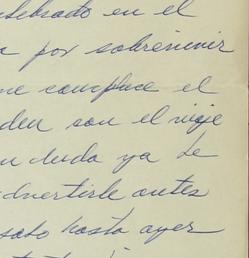 celebrado en el
a por sobrevivir
me complace el
den con el viaje
n duda ya te
advertirle antes
sato hasta ayer